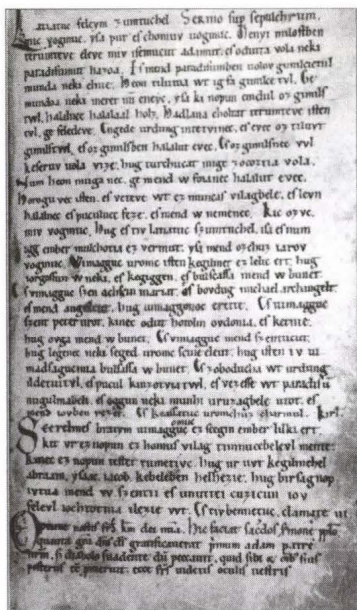 Sermo sup sepulchrum.
Latiatuc feleym zumtuchel
mic vogmuc. yſa pur eſ chomuv uogmuc. Menyi miloſtben
terumteve eleve miv iſemucut adamut. eſ odutta vola neki
paradiſumut hazoa. Eſ mend paradiſumben uolov gimilcictul
munda neki elnie. Heon tilutoa wt ig fa gimilce tvl. Ge
mundoa neki meret nu eneyc. yſa ki nopun emdul oz gimilſ
twl. halalnec halalaal holz. Hadlaua choltat terumteve iſten
tvl. ge feledeve. Engede urdung intetvinec. eſ evec oz tiluvt
gimilſtwl. eſ oz gimilſben halalut evec. Eſ oz gimilſnec vvl
keſeruv uola vize. hug turchucat mige zocoztia vola.
Num heon muga nec. ge mend w foianec halalut evec.
Horoguvec iſten. eſ veteve wt ez muncaſ vilagbele. eſ levn
halalnec eſ puculnec feze. eſ mend w nemenec. Kic ozvc.
miv vogmuc. Hug eſ tiv latiatuv ſzumtuchel. iſa eſ num
igg ember mulchotia ez vermut. yſa mend ozchuz iarov
vogmuc. Wimagguc uromv iſten kegilmet ez lelic ert. hug
iorgoſſun w neki. eſ kegiggen. eſ bulſaſſa mend w bunet.
Eſ vimagguc ſzen achſcin mariat. eſ bovdug michael archangelt.
eſ mend angelcut. hug uimaggonoc erette. Eſ uimagguc
ſzent peter urot. kinec odut hotolm ovdonia. eſ ketnie.
hug ovga mend w bunet. Eſ vimagguc mend ſzentucut.
hug legenec neki ſeged uromc ſcine eleut. hug iſten iv ui
madſagucmia bulſaſſa w bunet. Eſ zoboducha wt urdung
ildetuitvl. eſ pucul kinzotviatwl. eſ vezeſſe wt paradiſu
nugulmabeli. eſ oggun neki munhi uruzagbele utot. eſ
mend iovben rezet. Eſ keaſſatuc uromchuz charmul. Kirl.
Scerelmes bratym uimagomuc ez ſcegin ember lilki ert.
kit vr ez nopun ez homuſ vilag timnucebelevl mente.
kinec ez nopun teſtet tumetivc. hug ur uvt kegilmehel
abraam. yſaac. iacob. kebeleben helhezie. hug birſagnop
ivtva mend w ſzentii eſ unuttei cuzicun iov
felevl iochtotnia ilezie wt. Eſ tivbennetuc. clamate iii